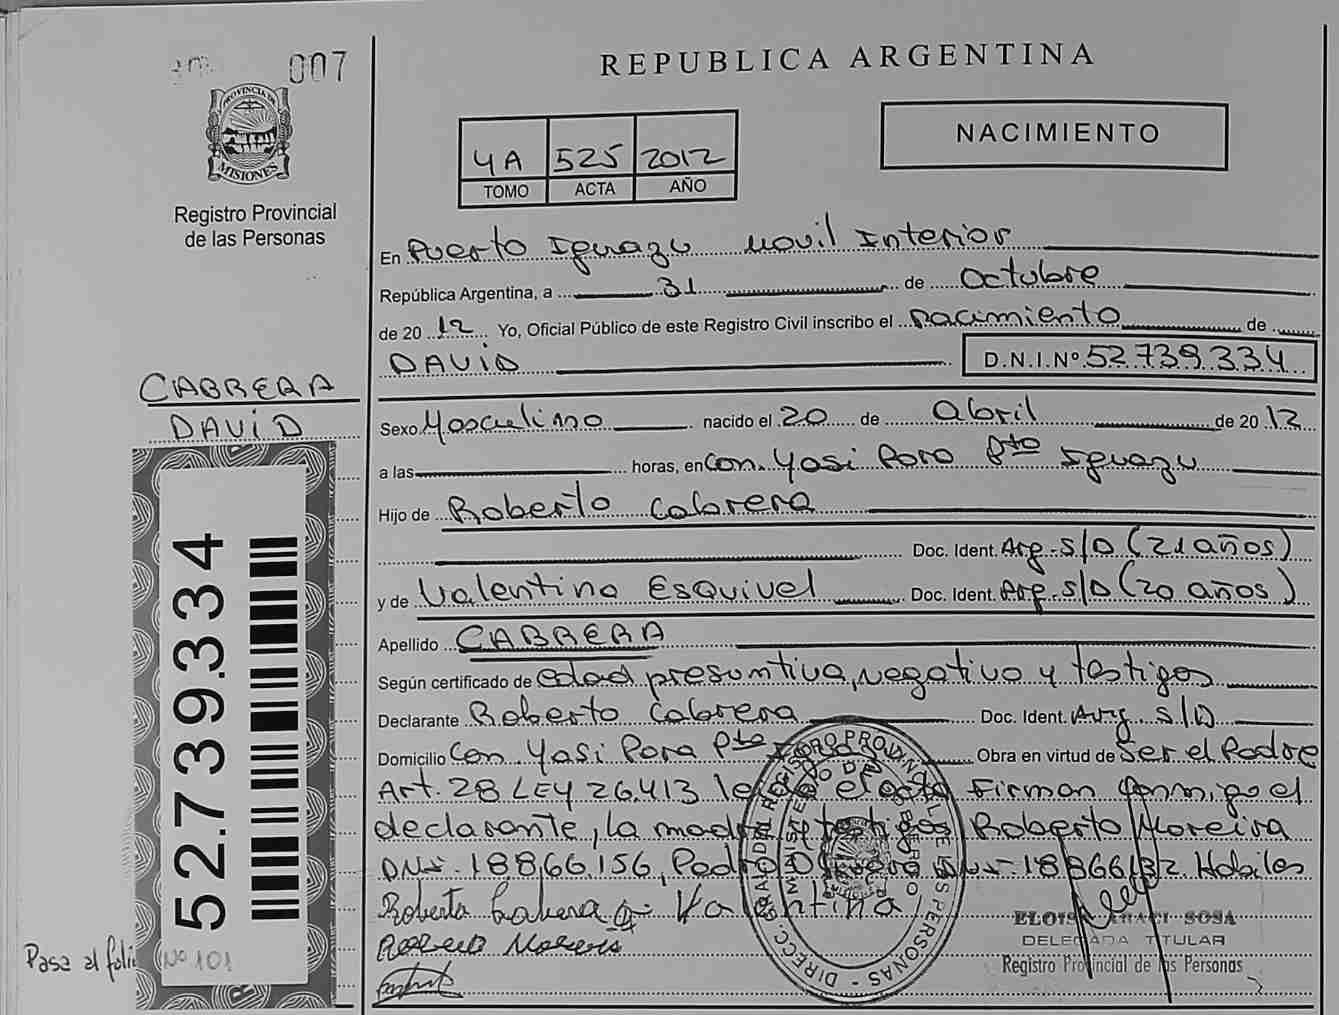 007
REPUBLICA ARGENTINA
PROVINCIA DE
MISIONES
Registro Provincial
de las Personas
4A 525 2012
TOMO ACTA AÑO
NACIMIENTO
En Puerto Iguazu Movil Interior
República Argentina, a 31 de Octubre
de 20 12 Yo, Oficial Público de este Registro Civil inscribo el nacimiento de
DAVID D.N.I.Nº 52.739.334
CABRERA
DAVID
Sexo Masculino nacido el 20 de abril de 20 12
a las horas, en Com. Yasi Pora Pto Iguazu
Hijo de Roberto Cabrera
Doc. Ident. Arg. S/D (21 años)
y de Valentina Esquivel Doc. Ident. Arg. S/D (20 años)
Apellido CABRERA
Según certificado de edad presuntiva, negativo y testigos
Declarante Roberto Cabrera Doc. Ident. Arg. S/D
Domicilio Com. Yasi Pora Pto Obra en virtud de Ser el Padre
Art. 28 LEY 26.413 efecto Firman conmigo el
declarante, la madre y testigos Roberto Moreira
DNI. 18.866.156, Pedro DNI. 18.866.132. Habiles
Roberto Cabrera Valentina
Roberto Moreira
52.739.334
Pasa al folio Nº 101
DIRECC. GRAL DEL REGISTRO PROVINCIAL DE LAS PERSONAS
MINISTERIO DE GOBIERNO
MISIONES
ELOISA ARACI SOSA
DELEGADA TITULAR
Registro Provincial de las Personas